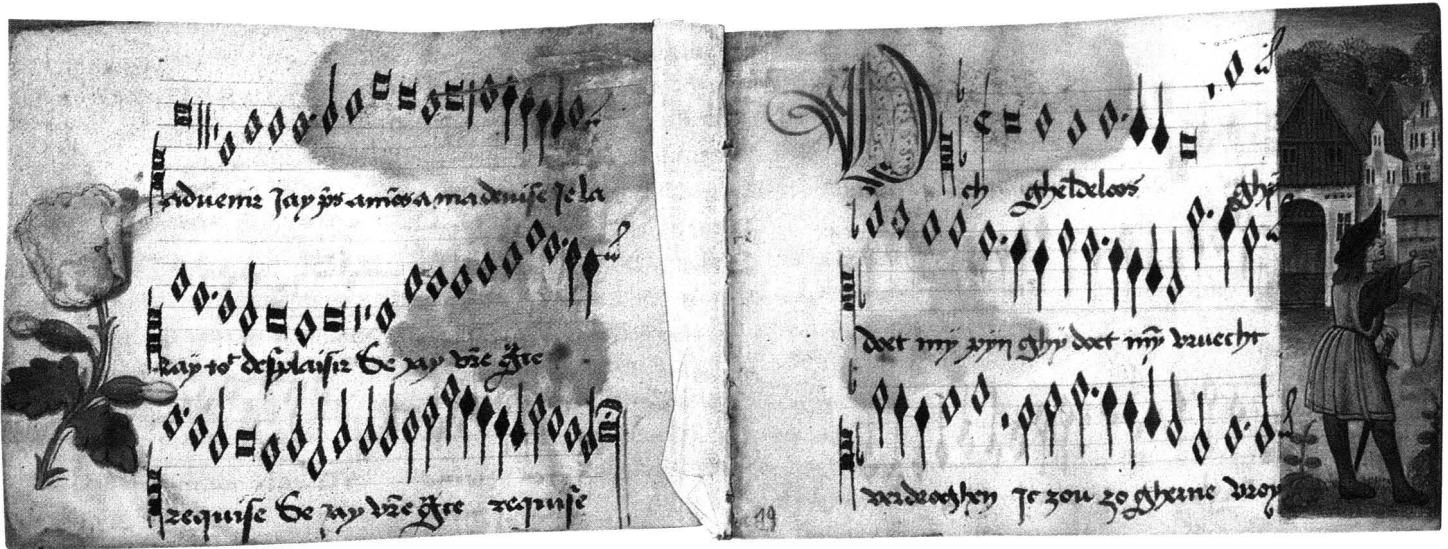 advenir Jay pris amours a ma devise Je la
ray to9 desplaisir Se jay vre gce
requise Se jay vre gce requise
Wch gheldeloos ghy
doet my pyn ghy doet my vruecht
verdroghen Ic zou zo gherne vroy